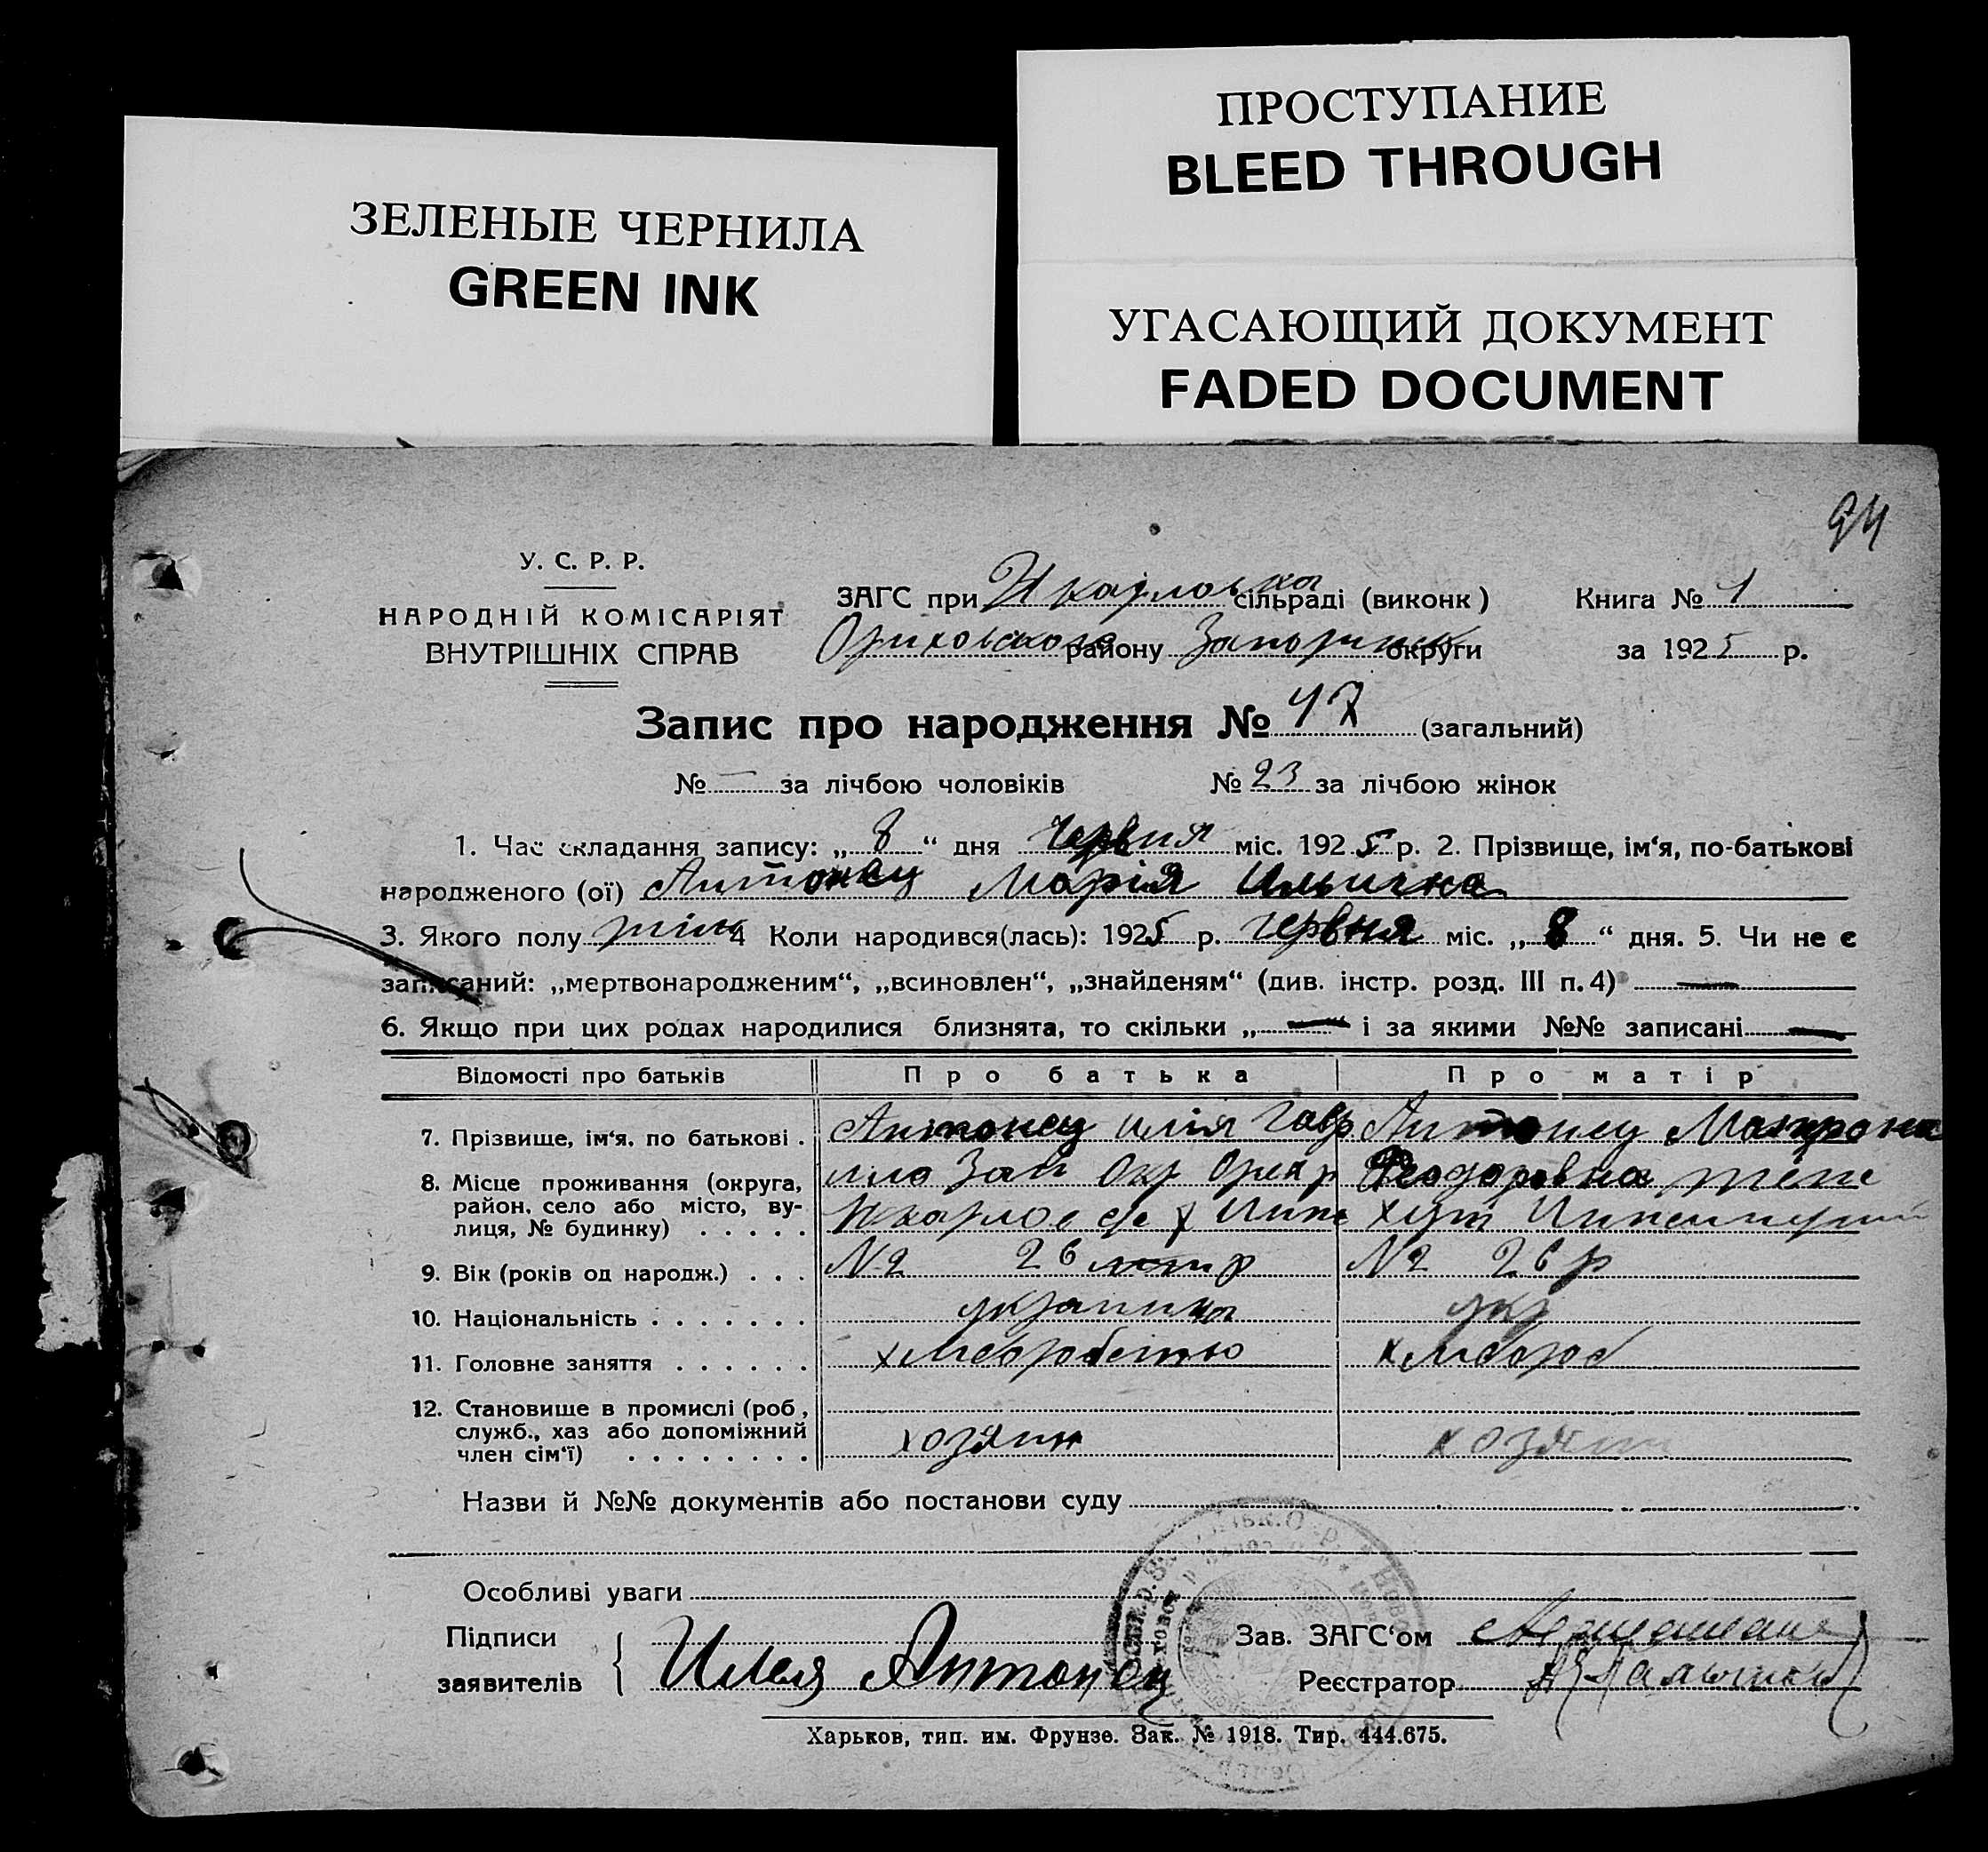 ПРОСТУПАНИЕ
BLEED THROUGH
ЗЕЛЕНЫЕ ЧЕРНИЛА
GREEN INK
УГАСАЮЩИЙ ДОКУМЕНТ
FADED DOCUMENT
94
У. С. Р. Р.
НАРОДНІЙ КОМІСАРІЯТ
ВНУТРІШНІХ СПРАВ
ЗАГС при сільраді (виконк) Книга № 1
Ориховского району округи за 1925 р.
Запис про народження № 47 (загальний)
№ — за лічбою чоловіків № 23 за лічбою жінок
1. Час складання запису: „ 8 “ дня червня міс. 1925 р. 2. Прізвище, ім‘я, по-батькові
народженого (ої) Антонец Марія Ильична
3. Якого полу жін 4 Коли народився(лась): 1925 р. червня міс. „ 8 “ дня. 5. Чи не є
записаний: „мертвонародженим“, „всиновлен“, „знайденям“ (див. інстр. розд. III п. 4) —
6. Якщо при цих родах народилися близнята, то скільки „ — “ і за якими №№ записані —
Відомості про батьків Про батька Про матір
7. Прізвище, ім‘я, по батькові . Антонец Илія Гавр Антонец Мотрона
8. Місце проживання (округа, Зап Окр Орех р Феодоровна
район, село або місто, ву-
лиця, № будинку) . . . . . хут
9. Вік (років од народж.) . . . №2 26 р №2 26 р
10. Національність . . . . . . . украинец укр
11. Головне заняття . . . . . . хлеборобство хлебороб
12. Становище в промислі (роб,
служб., хаз або допоміжний
член сім‘ї) . . . . . . . . хозяин хозяин
Назви й №№ документів або постанови суду
Особливі уваги
Підписи Зав. ЗАГС‘ом
заявителів Илья Антонец Реєстратор
Харьков, тип. им. Фрунзе. Зак. № 1918. Тир. 444.675.